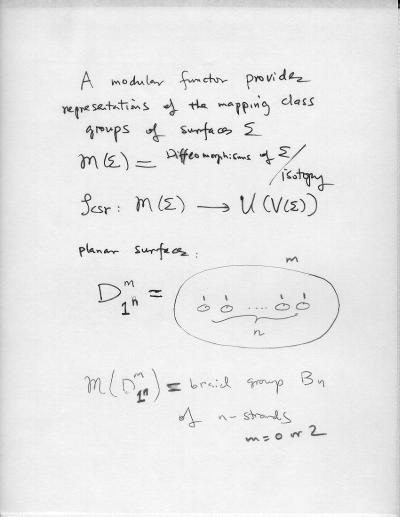 A modular functor provides
representations of the mapping class
groups of surfaces Σ
M(Σ) = Diffeomorphisms of Σ / isotopy
ρ_CSr : M(Σ) → U(V(Σ))
planar surfaces:
m
D^m_{1^n} =
1 1 .... 1 1
n
M(D^m_{1^n}) = braid group B_n
of n-strands
m = 0 or 2